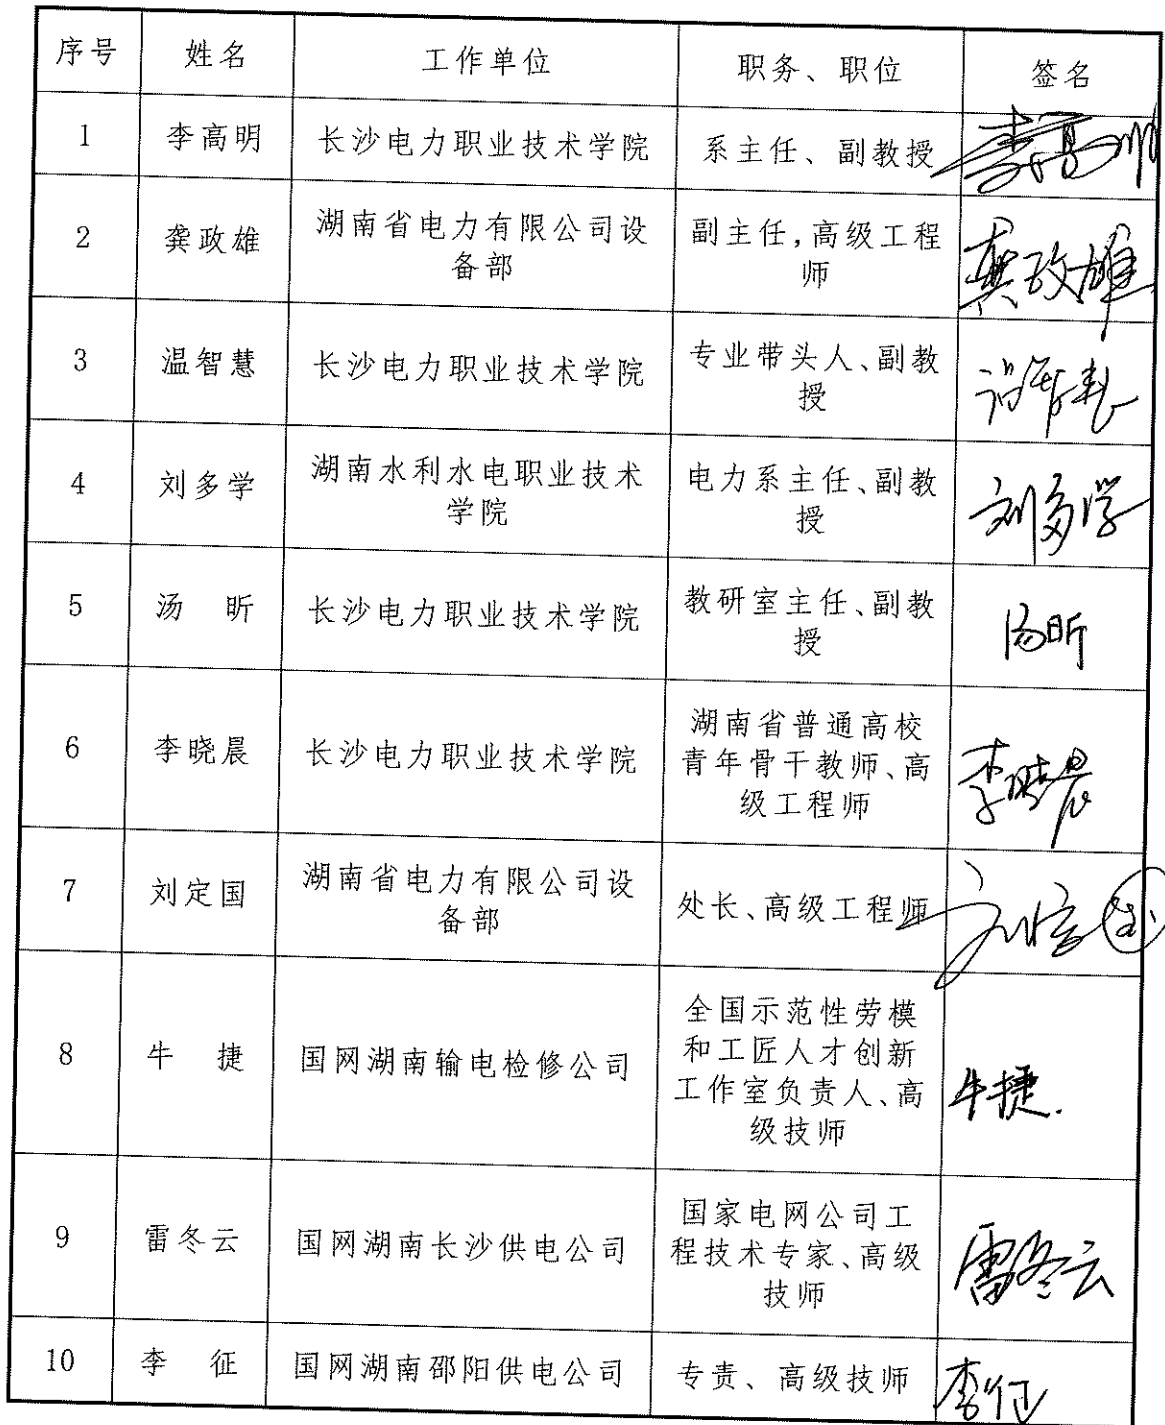 序号 姓名 工作单位 职务、职位 签名
1 李高明 长沙电力职业技术学院 系主任、副教授 李高明
2 龚政雄 湖南省电力有限公司设
备部 副主任,高级工程
师 龚政雄
3 温智慧 长沙电力职业技术学院 专业带头人、副教
授
4 刘多学 湖南水利水电职业技术
学院 电力系主任、副教
授 刘多学
5 汤 昕 长沙电力职业技术学院 教研室主任、副教
授 汤昕
6 李晓晨 长沙电力职业技术学院 湖南省普通高校
青年骨干教师、高
级工程师 李晓晨
7 刘定国 湖南省电力有限公司设
备部 处长、高级工程师 刘定国
8 牛 捷 国网湖南输电检修公司 全国示范性劳模
和工匠人才创新
工作室负责人、高
级技师 牛捷.
9 雷冬云 国网湖南长沙供电公司 国家电网公司工
程技术专家、高级
技师 雷冬云
10 李 征 国网湖南邵阳供电公司 专责、高级技师 李征